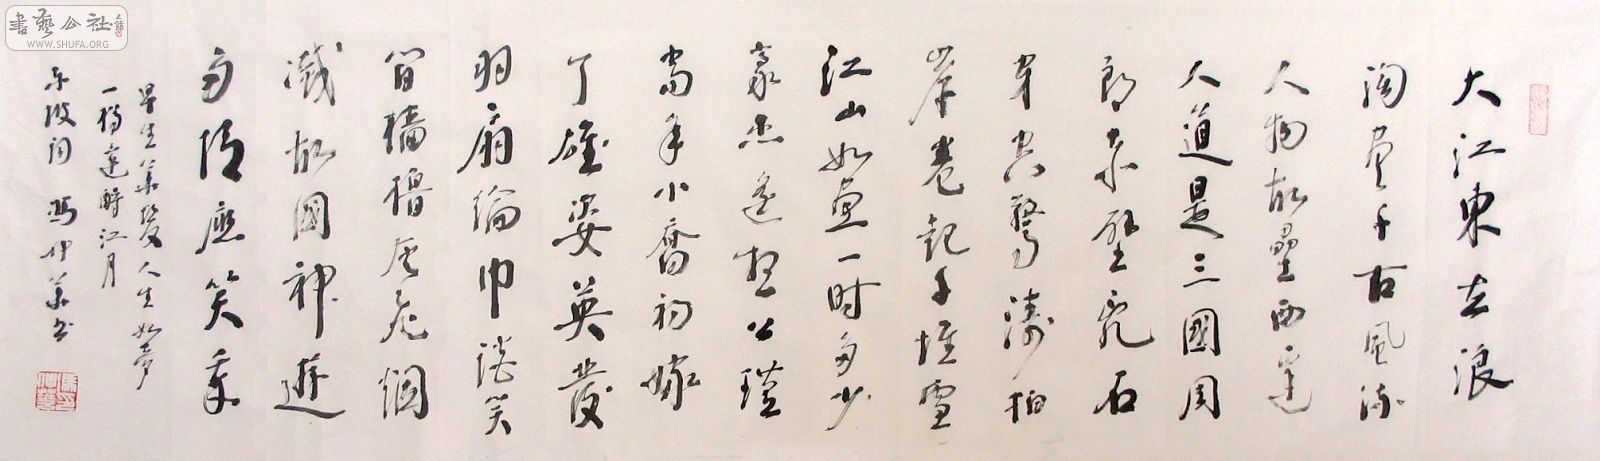 大江東去浪
淘盡千古風流
人物故壘西邊
人道是三國周
郎赤壁亂石
穿空驚濤拍
岸卷起千堆雪
江山如畫一時多少
豪杰遙想公瑾
當年小喬初嫁
了雄姿英發
羽扇綸巾談笑
間檣櫓灰飛烟
滅故國神遊
多情應笑我
早生華髮人生如夢
一樽還酹江月
東坡詞 馮仲華書
書藝公社
WWW.SHUFA.ORG